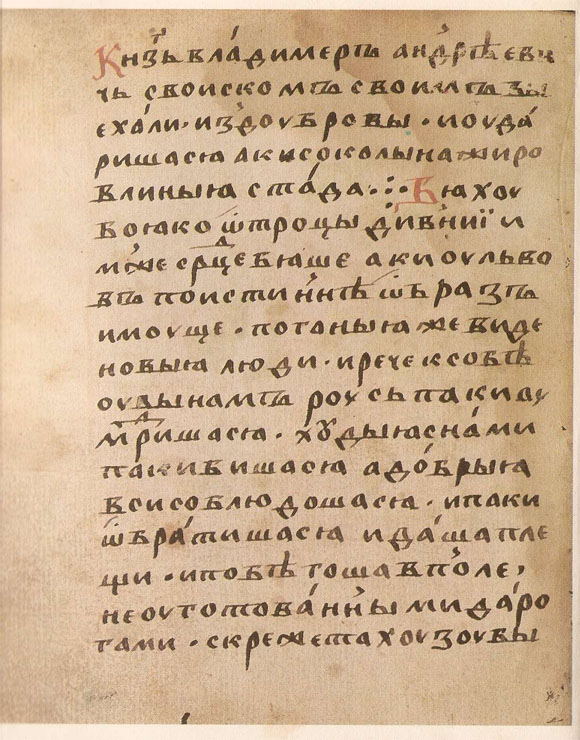 Кнѧзь владимеръ андрѣеви
чь своискомъ своимъ вы
ехали· из доубровы · ноуда
ришасꙗ аки соколы на жиро
влиныꙗ стада ··: Бꙗхоу
боюко ѿтроцы дивнїи и
мже срⷣце бꙗше аки оу льво
въ поистиннѣ ѡбразъ
имоуще · поганыꙗ же виде
новыꙗ люди · и рече к собѣ
оувы намъ роусь паки оу
мⷣришасꙗ · хꙋдыꙗ с нами
паки бишасꙗ а добрыꙗ
вси соблюдошасꙗ · и паки
ѡбратишасꙗ и даша пле
щи · и побѣгоша в поле,
неоуготованными даро
гами · скрежетахоу зоубы